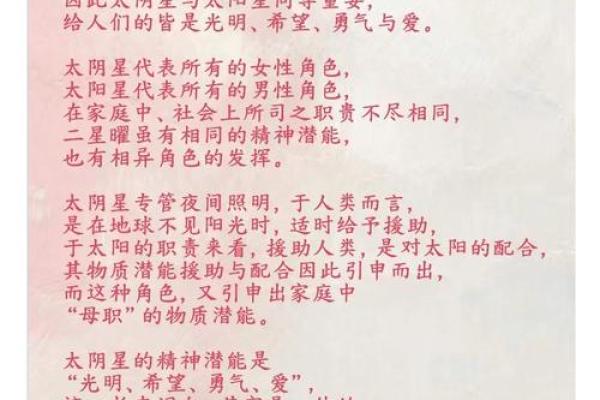 因此太阴星与太阳星同等重要，
给人们的皆是光明、希望、勇气与爱。
太阴星代表所有的女性角色，
太阳星代表所有的男性角色，
在家庭中、社会上所司之职贵不尽相同，
二星曜虽有相同的精神潜能，
也有相异角色的发挥。
太阴星专管夜间照明，于人类而言，
是在地球不见阳光时，适时给予援助，
于太阳的职责来看，援助人类，是对太阳的配合，
其物质潜能援助与配合因此引申而出，
而这种角色，又引申出家庭中
“母职”的物质潜能。
太阴星的精神潜能是
“光明、希望、勇气、爱”，